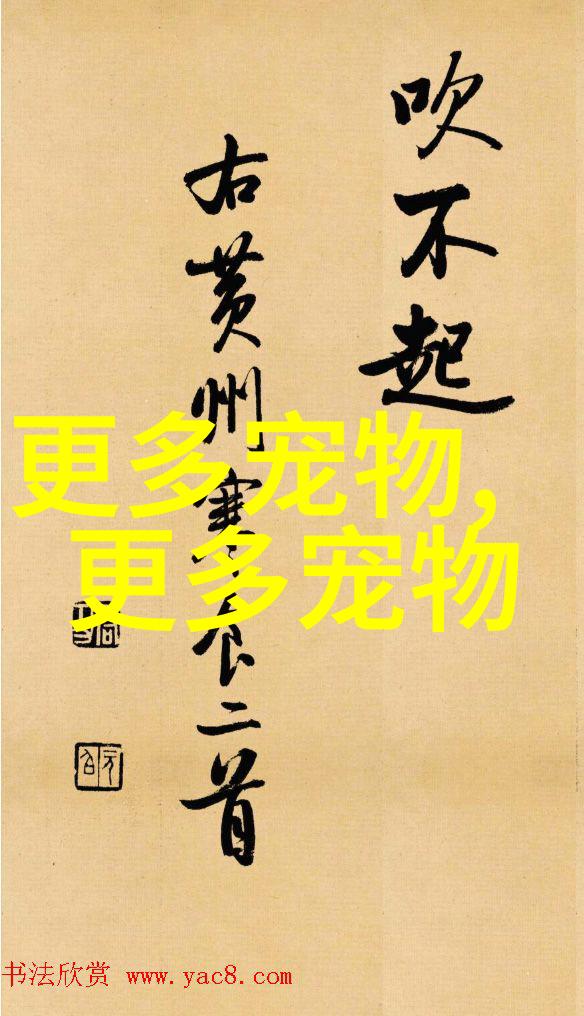 吹不起
右黄州寒食二首
更多宠物,
更多宠物
书法欣赏 www.yac8.com